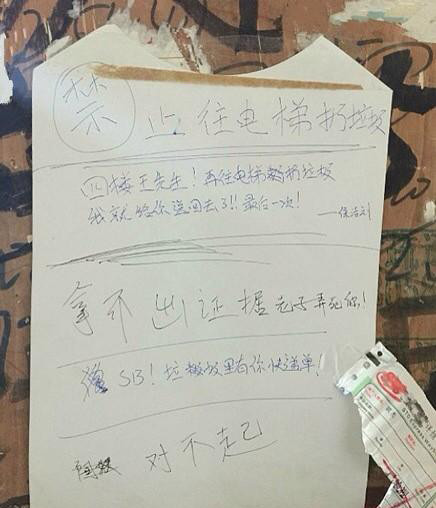 禁止往电梯扔垃圾
四楼王先生！再往电梯扔垃圾
我就给你送回去了!! 最后一次！
——保洁刘
拿不出证据老子弄死你！
SB！垃圾袋里有你快递单！
对不起